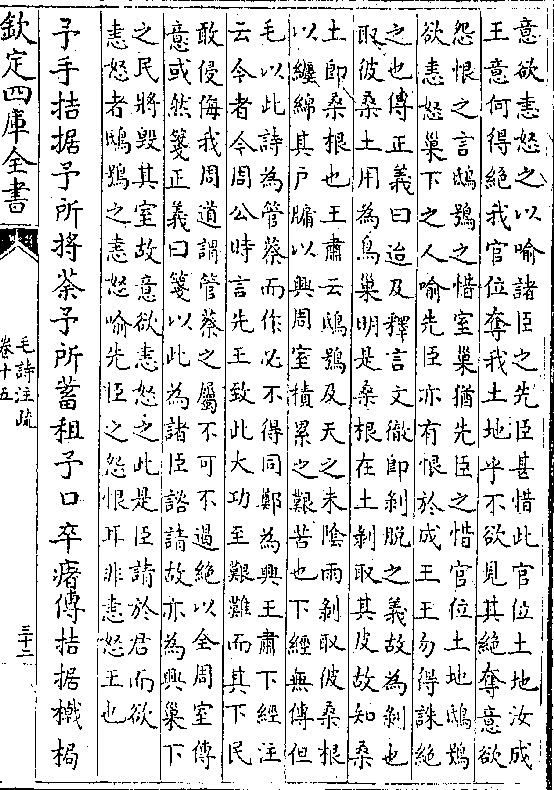 意欲恚怒之以喻諸臣之先臣甚惜此官位土地汝成
王意何得絕我官位奪我土地乎不欲見其絕奪意欲
怨恨之言鴟鴞之惜室巢猶先臣之惜官位土地鴟鴞
欲恚怒巢下之人喻先臣亦有恨於成王王勿得誅絕
之也傳正義曰迨及釋言文徹即剝脫之義故為剝也
取彼桑土用為鳥巢明是桑根在土剝取其皮故知桑
土即桑根也王肅云鴟鴞及天之未陰雨剝取彼桑根
以纏綿其户牖以興周室積累之艱苦也下經無傳但
毛以此詩為管蔡而作必不得同鄭為興王肅下經注
云今者今周公時言先王致此大功至艱難而其下民
敢侵侮我周道謂管蔡之屬不可不遏絕以全周室傳
意或然箋正義曰箋以此為諸臣諮請故亦為興巢下
之民將毀其室故意欲恚怒之此是臣請於君而欲
恚怒者鴟鴞之恚怒喻先臣之怨恨耳非恚怒王也
予手拮据予所捋荼予所蓄租予口卒瘏傳拮据撠挶
欽定四庫全書
毛詩注疏
卷十五
三十二